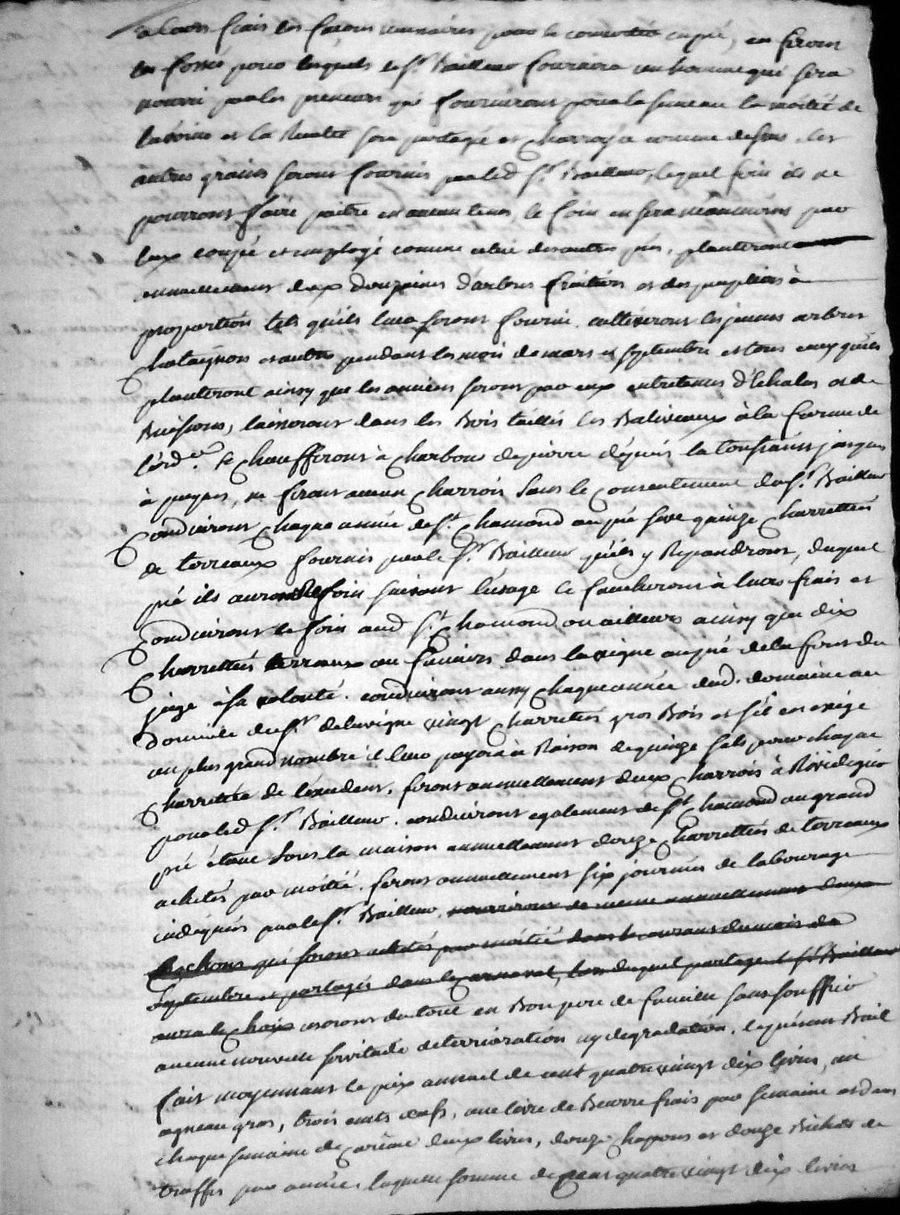 a leurs frais les façons necessaires pour le convertir en pré, en feront
les fossés pour lesquels led Sr. Bailleur fournira un homme qui sera
nourri par les preneurs qui fourniront pour la semence la moitié de
l'avoine et la recolte sera partagé et charroyé comme dessus. les
autres grains seront fournis par led Sr. Bailleur, lequel foin ils ne
pourront faire paitre en aucun tems, le foin en sera néanmoins par
eux coupé et employé comme celui des autres prés. planteront
annuellement deux douzaines d'arbres fruitiers et des peupliers à
proportion tels qu'ils leur seront fourni. cultiveront les jeunes arbres
chataigners et autres pendant les mois de mars et septembre et tous ceux qu'ils
planteront ainsy que les anciens seront par eux entretenus d'Echalas et de
Buissons, laisseront dans les Bois taillis les Baliveaux à la forme de
l'ord.ce se chaufferont à charbon de pierre depuis la toussaint jusques
à paques, ne feront aucun charrois sans le consentement du Sr. Bailleur
Conduiront chaque année de St. chamond au pré quinze charrettées
de terreaux fournis par le Sr. Bailleur qu'ils y Repandront, duquel
pré ils auront le foin suivant l'usage le faucheront à leurs frais et
Conduiront le foin aud St. chamond ou ailleurs ainsy que dix
charrettées terreaux ou fumiers dans la vigne au pré de la font du
juge à sa volonté. conduiront aussy chaque année dud. domaine au
domicile du Sr. delavigne vingt charrettées gros Bois et s'il en exige
un plus grand nombre il leur payera à Raison de quinze sols pour chaque
charrettée de l'excedent. feront annuellement deux charrois à
pour led Sr. Bailleur. conduiront egalement de St. chamond au grand
pré étant sous la maison annuellement douze charrettées de terreaux
achetés par moitié. feront annuellement six journées de labourage
indiqués par le Sr. Bailleur, nourriront de meme annuellement deux
Cochons qui seront achetés par moitié dans le courant du mois de
Septembre et partagés dans le carnaval, lors duquel partage led Sr. Bailleur
aura le choix useront du tout en Bon pere de famille sans souffrir
aucune nouvelle servitude deterrioration ny degradation. le présent Bail
fait moyennant le prix annuel de cent quatre vingt dix livres, un
agneau gras, trois cents d'œufs, une livre de Beurre frais par semaine et dans
chaque semaine de carême deux livres, douze chappons et douze Bichets de
truffes par année. laquelle somme de cent quatre vingt dix livres